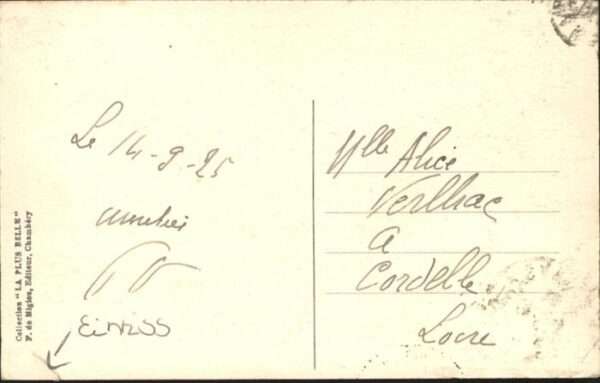 Collection "LA PLUS BELLE"
F. de Bigles, Editeur, Chambéry
Le 14-9-25
Mlle Alice
Verlhac
a
Cordelle
Loire